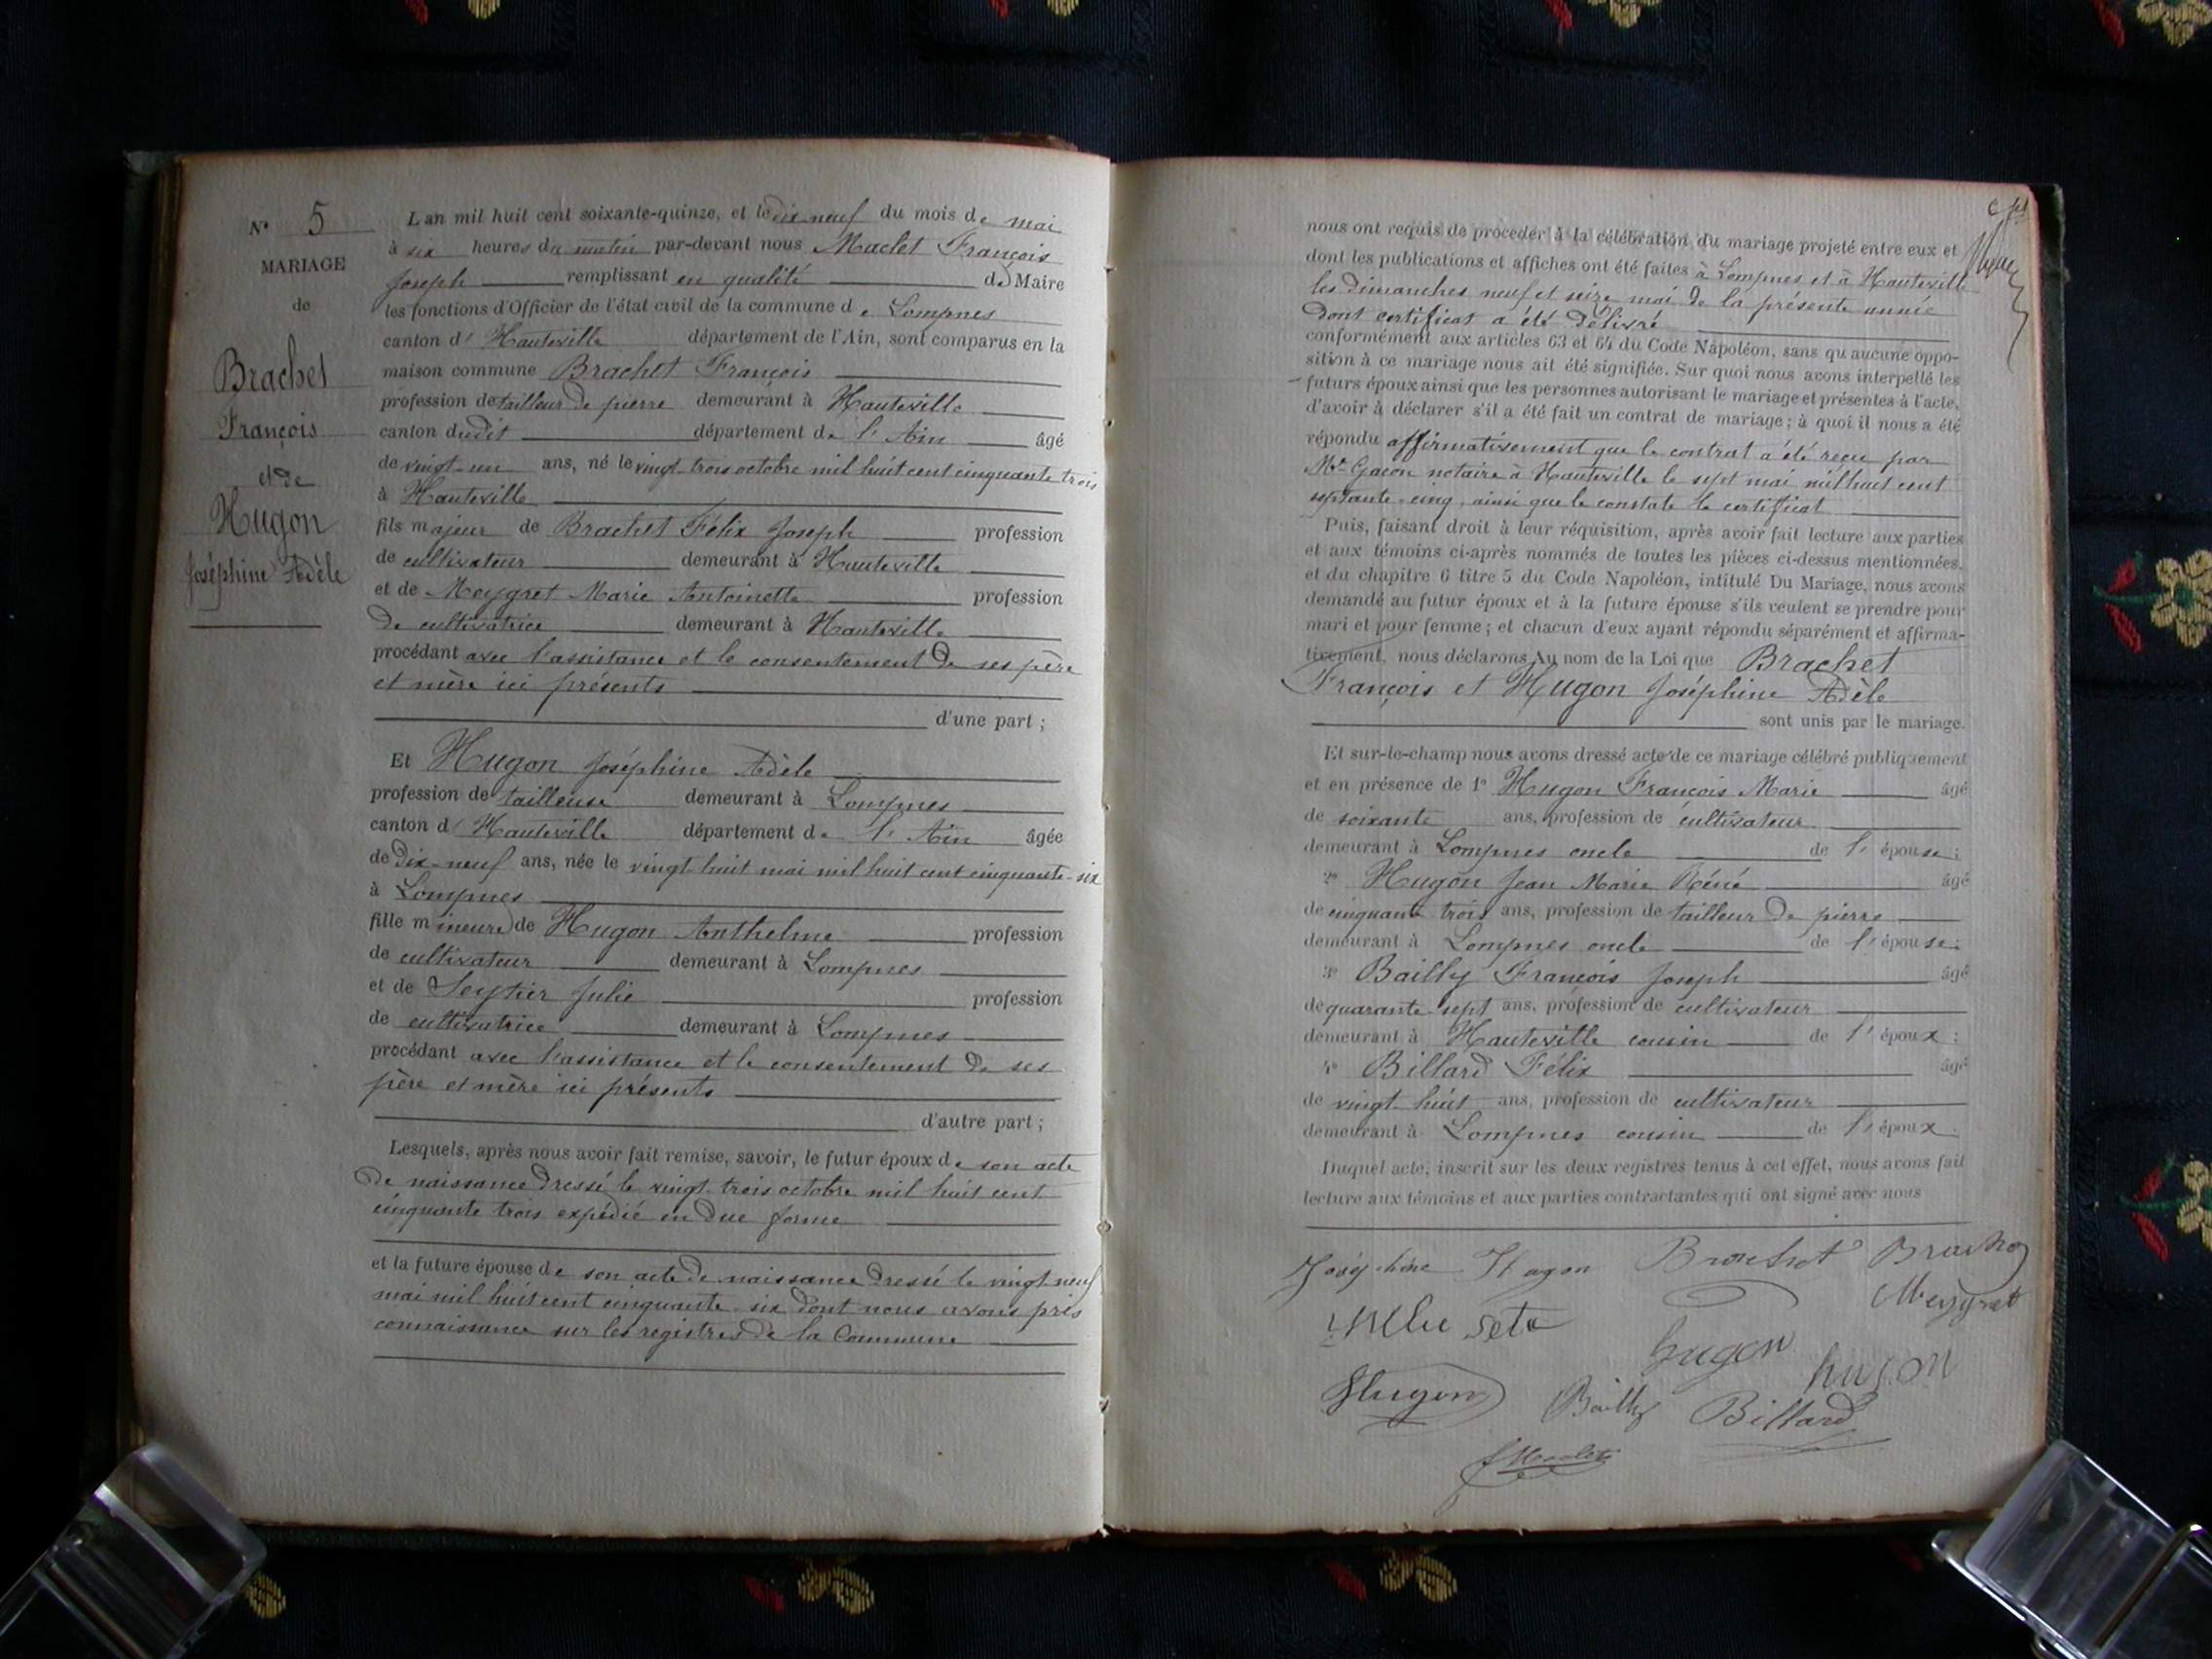 N° 5
MARIAGE
de
Brachet
François
et de
Hugon
Joséphine Adèle
L'an mil huit cent soixante-quinze, et le dix neuf du mois de mai
à six heures du matin par-devant nous Maclet François
Joseph remplissant en qualité de Maire
les fonctions d'Officier de l'état civil de la commune de Lompnes
canton d' Hauteville département de l'Ain, sont comparus en la
maison commune Brachet François
profession de tailleur de pierre demeurant à Hauteville
canton dudit département de l'Ain âgé
de vingt-un ans, né le vingt-trois octobre mil huit cent cinquante trois
à Hauteville
fils majeur de Brachet Félix Joseph profession
de cultivateur demeurant à Hauteville
et de Meygret Marie Antoinette profession
de cultivatrice demeurant à Hauteville
procédant avec l'assistance et le consentement de ses père
et mère ici présents
d'une part ;
Et Hugon Joséphine Adèle
profession de tailleuse demeurant à Lompnes
canton d' Hauteville département de l'Ain âgée
de dix-neuf ans, née le vingt-huit mai mil huit cent cinquante-six
à Lompnes
fille mineure de Hugon Anthelme profession
de cultivateur demeurant à Lompnes
et de Seytier Julie profession
de cultivatrice demeurant à Lompnes
procédant avec l'assistance et le consentement de ses
père et mère ici présents
d'autre part ;
Lesquels, après nous avoir fait remise, savoir, le futur époux de son acte
de naissance dressé le vingt-trois octobre mil huit cent
cinquante trois expédié en due forme
et la future épouse de son acte de naissance dressé le vingt neuf
mai mil huit cent cinquante-six dont nous avons pris
connaissance sur les registres de la Commune
nous ont requis de procéder à la célébration du mariage projeté entre eux et
dont les publications et affiches ont été faites à Lompnes et à Hauteville
les dimanches neuf et seize mai de la présente année
dont certificat a été délivré
conformément aux articles 63 et 64 du Code Napoléon, sans qu'aucune oppo-
sition à ce mariage nous ait été signifiée. Sur quoi nous avons interpellé les
futurs époux ainsi que les personnes autorisant le mariage et présentes à l'acte,
d'avoir à déclarer s'il a été fait un contrat de mariage ; à quoi il nous a été
répondu affirmativement que le contrat a été reçu par
Me Gacon notaire à Hauteville le sept mai mil huit cent
septante-cinq, ainsi que le constate le certificat
Puis, faisant droit à leur réquisition, après avoir fait lecture aux parties
et aux témoins ci-après nommés de toutes les pièces ci-dessus mentionnées,
et du chapitre 6 titre 5 du Code Napoléon, intitulé Du Mariage, nous avons
demandé au futur époux et à la future épouse s'ils veulent se prendre pour
mari et pour femme ; et chacun d'eux ayant répondu séparément et affirma-
tivement, nous déclarons Au nom de la Loi que Brachet
François et Hugon Joséphine Adèle
sont unis par le mariage.
Et sur-le-champ nous avons dressé acte de ce mariage célébré publiquement
et en présence de 1° Hugon François Marie âgé
de soixante ans, profession de cultivateur
demeurant à Lompnes oncle de l'épouse ;
2° Hugon Jean Marie Réné âgé
de cinquante trois ans, profession de tailleur de pierre
demeurant à Lompnes oncle de l'épouse ;
3° Bailly François Joseph âgé
de quarante sept ans, profession de cultivateur
demeurant à Hauteville cousin de l'époux ;
4° Billard Félix âgé
de vingt-huit ans, profession de cultivateur
demeurant à Lompnes cousin de l'époux.
Duquel acte, inscrit sur les deux registres tenus à cet effet, nous avons fait
lecture aux témoins et aux parties contractantes qui ont signé avec nous
Joséphine Hugon Brachet Brachet
Meygret
hugon
hugon
Hugon Bailly Billard
f Maclet